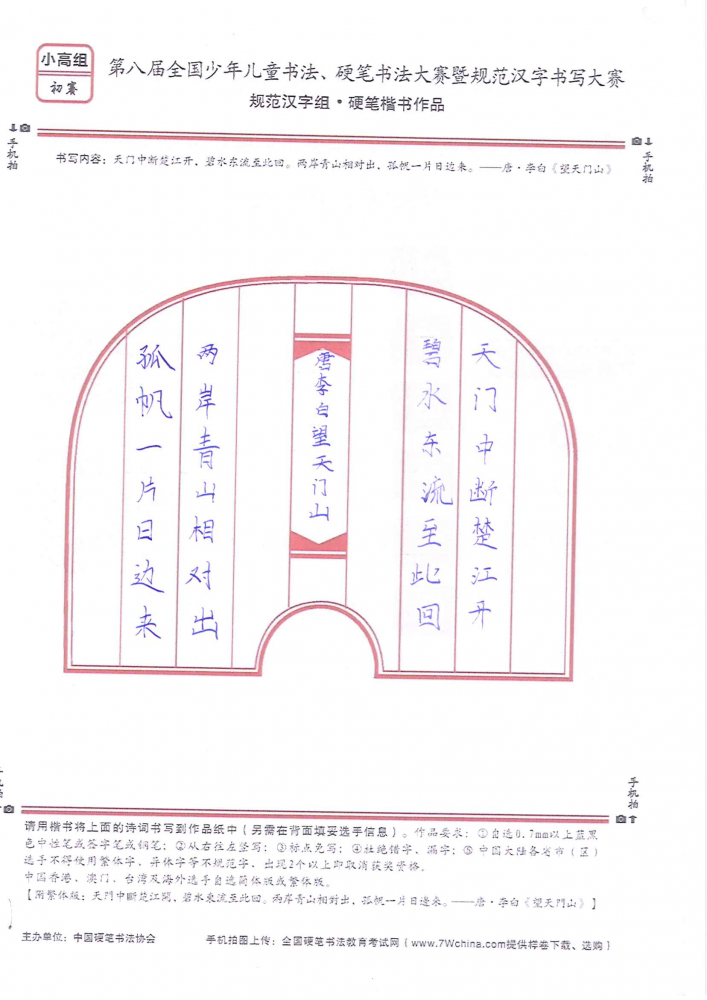 小高组
初赛
第八届全国少年儿童书法、硬笔书法大赛暨规范汉字书写大赛
规范汉字组·硬笔楷书作品
手机拍
手机拍
书写内容：天门中断楚江开，碧水东流至此回。两岸青山相对出，孤帆一片日边来。——唐·李白《望天门山》
天门中断楚江开
碧水东流至此回
唐李白望天门山
两岸青山相对出
孤帆一片日边来
手机拍
请用楷书将上面的诗词书写到作品纸中（另需在背面填妥选手信息）。作品要求：①自选0.7mm以上蓝黑
色中性笔或签字笔或钢笔；②从右往左竖写；③标点免写；④杜绝错字、漏字；⑤中国大陆各省市（区）
选手不得使用繁体字、异体字等不规范字，出现2个以上即取消获奖资格，
中国香港、澳门、台湾及海外选手自选简体版或繁体版。
【附繁体版：天門中斷楚江開，碧水東流至此回。兩岸青山相對出，孤帆一片日邊來。——唐·李白《望天門山》】
主办单位：中国硬笔书法协会
手机拍图上传：全国硬笔书法教育考试网（www.7Wchina.com提供样卷下载、选购）